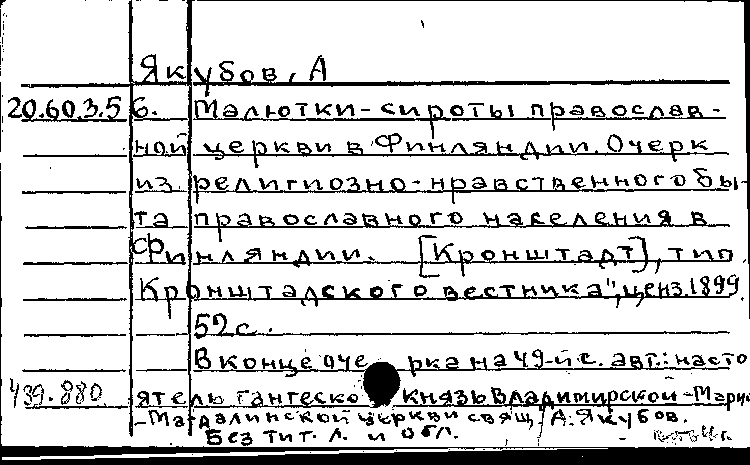 Якубов, А
20.60.3.5 6. Малютки-сироты православ-
ной церкви в Финляндии. Очерк
из религиозно-нравственного бы-
та православного населения в
Финляндии. [Кронштадт], тип.
Кронштадского вестника", ценз. 1899.
52 с.
В конце очерка на 49-й с. авт.: насто
439.880 ятель Гангеско князь Владимирской-Марие
-Магдалинской церкви свящ. А. Якубов.
Без тит. л. и обл.